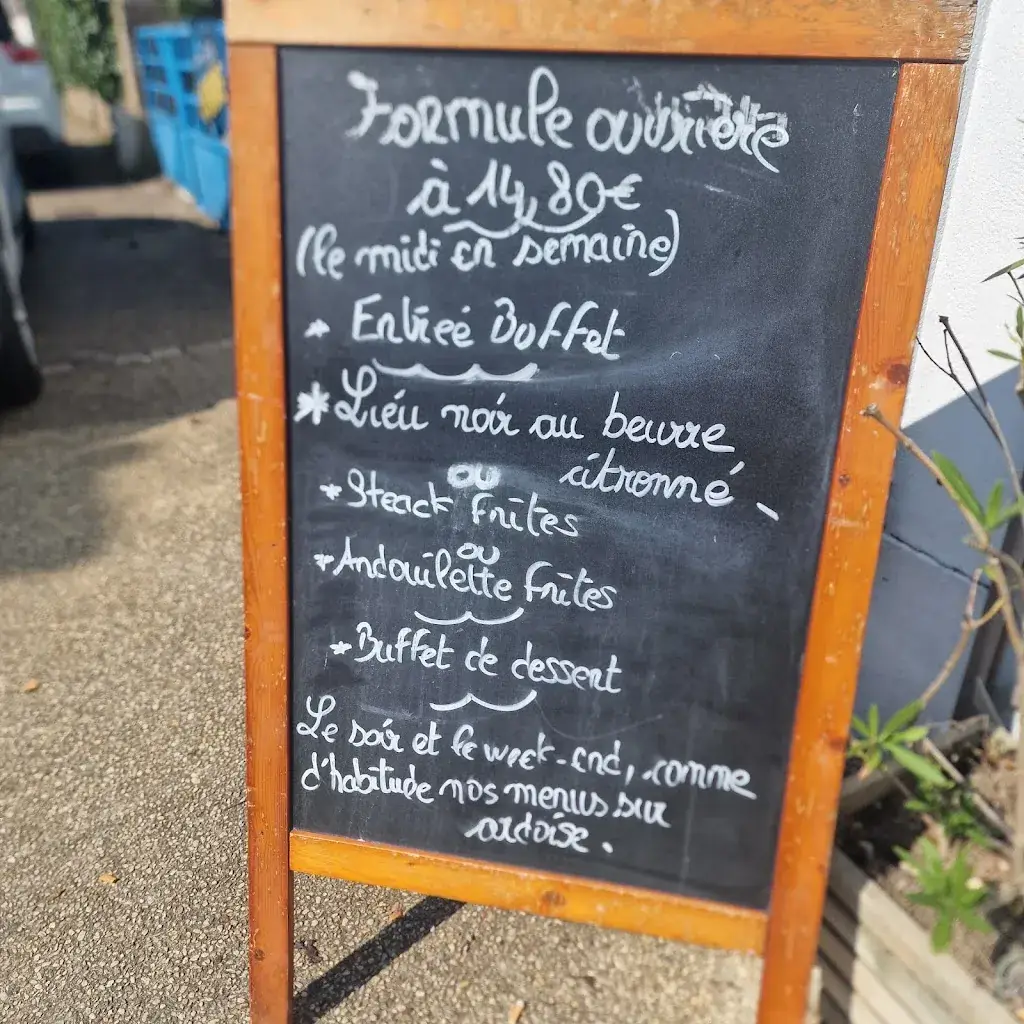 Formule ouvrière
à 14,80€
(le midi en semaine)
* Entrée Buffet
* Lieu noir au beurre
citronné
ou
* Steack frites
ou
* Andouillette frites
* Buffet de dessert
Le soir et le week-end, comme
d'habitude nos menus sur
ardoise.